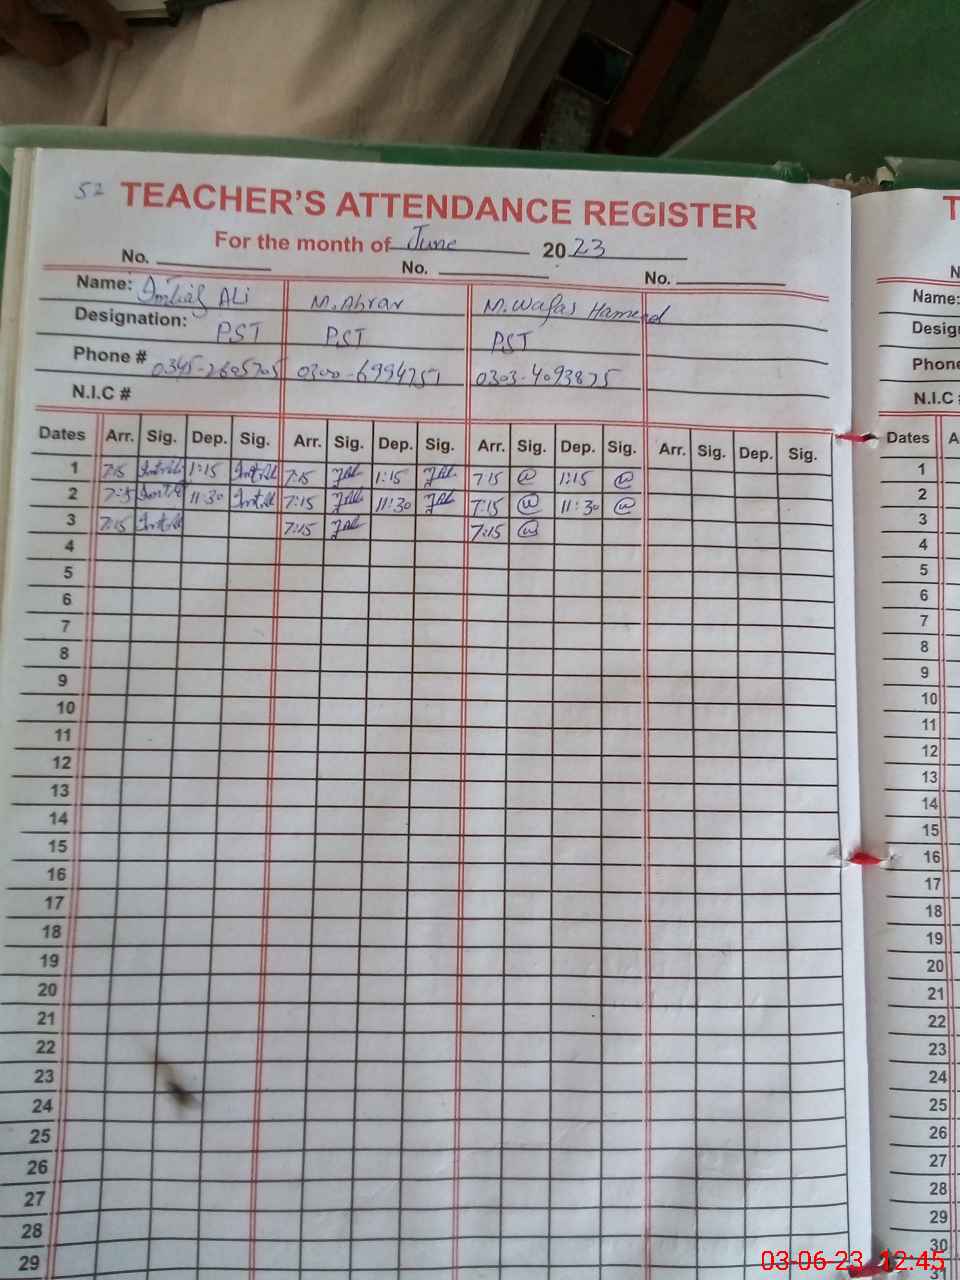 52 TEACHER'S ATTENDANCE REGISTER
For the month of June 2023
No. No. No.
Name: Imtiaz ALi M. Abrar M. Waqas Hameed
Designation: PST PST PST
Phone # 0345-2605705 0300-6994751 0303-4093875
N.I.C #
Dates Arr. Sig. Dep. Sig. Arr. Sig. Dep. Sig. Arr. Sig. Dep. Sig. Arr. Sig. Dep. Sig.
1 7:15 1:15 7:15 1:15 7:15 1:15
2 7:15 11:30 7:15 11:30 7:15 11:30
3 7:15 7:15 7:15
4
5
6
7
8
9
10
11
12
13
14
15
16
17
18
19
20
21
22
23
24
25
26
27
28
29
T
N
Name:
Desig
Phone
N.I.C
Dates A
1
2
3
4
5
6
7
8
9
10
11
12
13
14
15
16
17
18
19
20
21
22
23
24
25
26
27
28
29
30
31
03-06-23 12:45